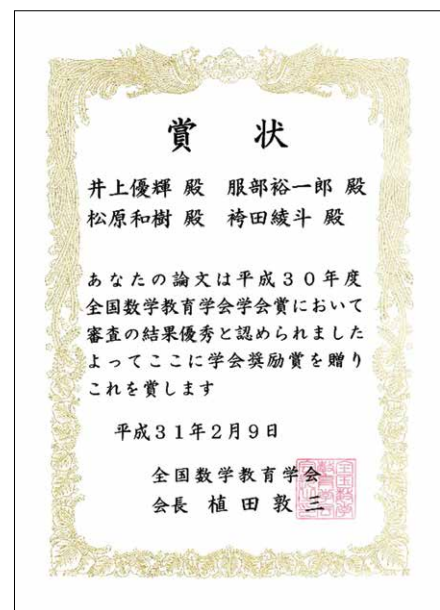 賞 状
井上優輝 殿 服部裕一郎 殿
松原和樹 殿 袴田綾斗 殿
あなたの論文は平成30年度
全国数学教育学会学会賞において
審査の結果優秀と認められました
よってここに学会奨励賞を贈り
これを賞します
平成31年2月9日
全国数学教育学会
会長 植田敦三